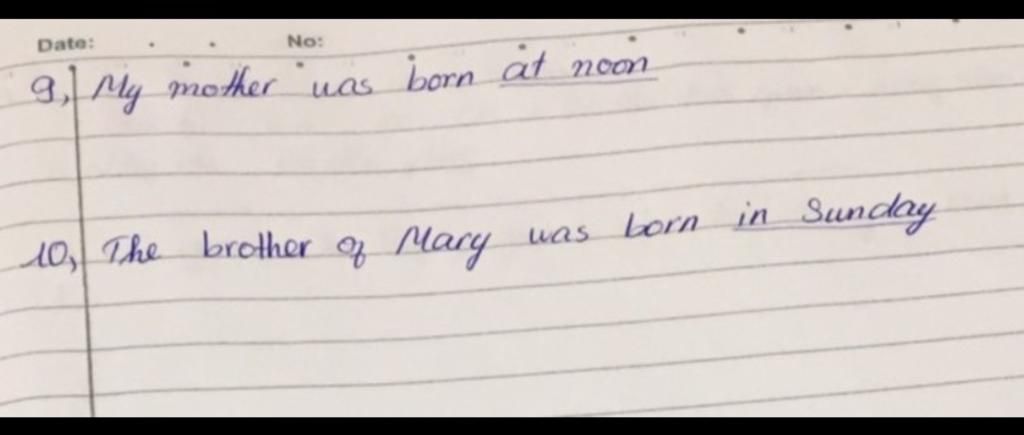 Date: No:
9, My mother was born at noon
10, The brother of Mary was born in Sunday